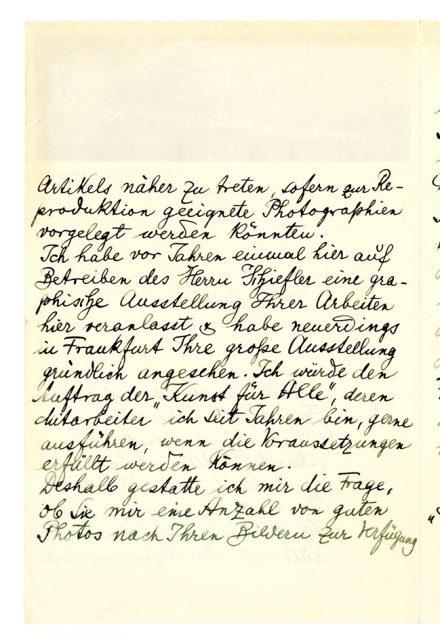 Artikels näher zu treten, sofern zur Re-
produktion geeignete Photographien
vorgelegt werden könnten.
Ich habe vor Jahren einmal hier auf
Betreiben des Herrn Schiefler eine gra-
phische Ausstellung Ihrer Arbeiten
hier veranlasst & habe neuerdings
in Frankfurt Ihre große Ausstellung
gründlich angesehen. Ich würde den
Auftrag der „Kunst für Alle", deren
Mitarbeiter ich seit Jahren bin, gerne
ausführen, wenn die Voraussetzungen
erfüllt werden können.
Deshalb gestatte ich mir die Frage,
ob Sie mir eine Anzahl von guten
Photos nach Ihren Bildern zur Verfügung